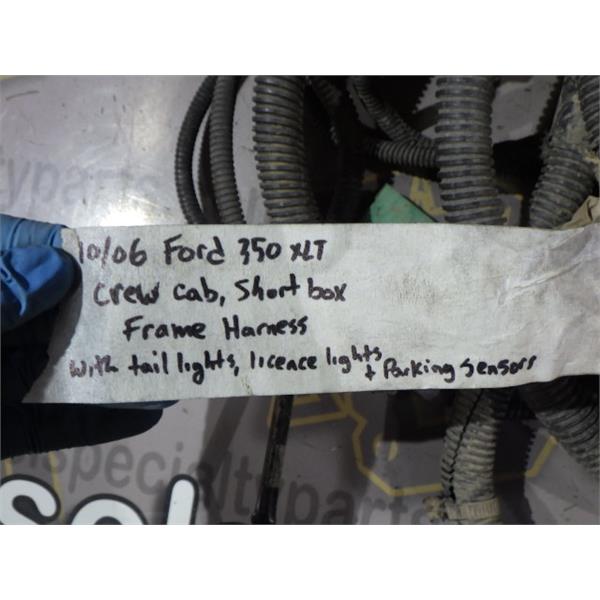 typarts
10/06 Ford 350 XLT
Crew Cab, Short box
Frame Harness
with tail lights, licence lights + Parking Sensors
specialtyparts